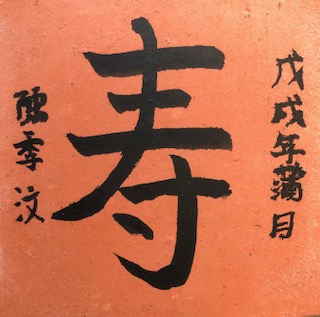 戊戌年蒲月
寿
陳季汶